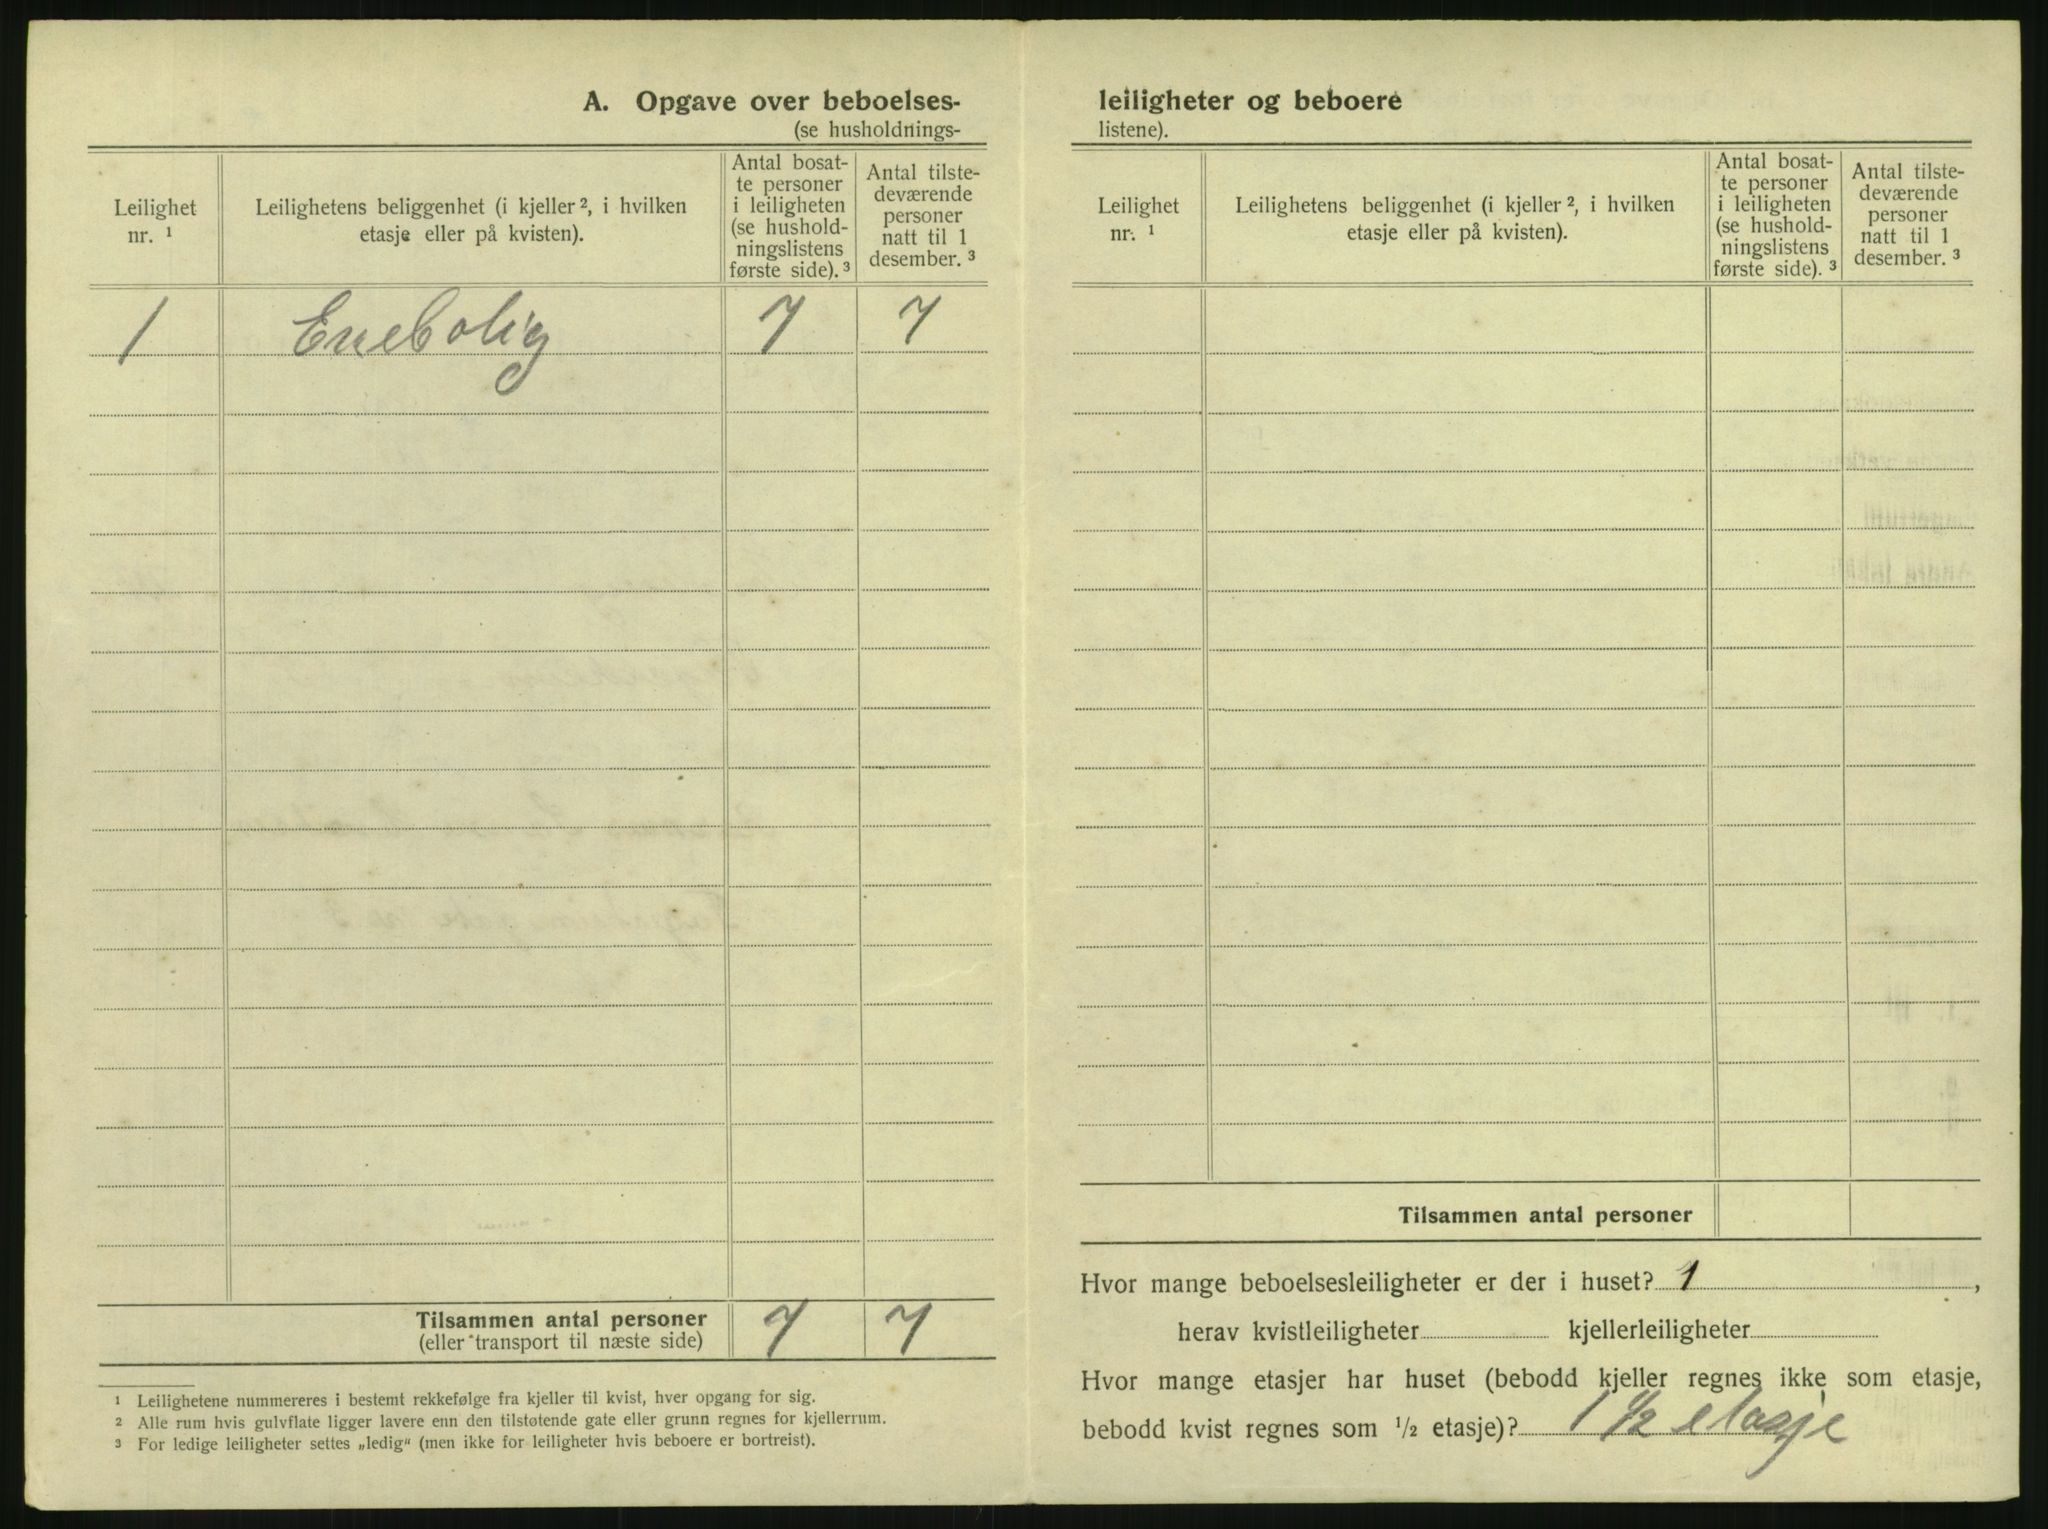 A. Opgave over beboelses-
(se husholdnings-
Leilighet nr. ¹
Leilighetens beliggenhet (i kjeller ², i hvilken
etasje eller på kvisten).
Antal bosat-
te personer
i leiligheten
(se hushold-
ningslistens
første side). ³
Antal tilste-
deværende
personer
natt til 1
desember. ³
1 Enebolig 7 7
Tilsammen antal personer 7 7
(eller transport til næste side)
¹ Leilighetene nummereres i bestemt rekkefølge fra kjeller til kvist, hver opgang for sig.
² Alle rum hvis gulvflate ligger lavere enn den tilstøtende gate eller grunn regnes for kjellerrum.
³ For ledige leiligheter settes „ledig“ (men ikke for leiligheter hvis beboere er bortreist).
leiligheter og beboere
listene).
Leilighet nr. ¹
Leilighetens beliggenhet (i kjeller ², i hvilken
etasje eller på kvisten).
Antal bosat-
te personer
i leiligheten
(se hushold-
ningslistens
første side). ³
Antal tilste-
deværende
personer
natt til 1
desember. ³
Tilsammen antal personer
Hvor mange beboelsesleiligheter er der i huset? 1 ,
herav kvistleiligheter kjellerleiligheter
Hvor mange etasjer har huset (bebodd kjeller regnes ikke som etasje,
bebodd kvist regnes som 1/2 etasje)? 1 1/2 etasje